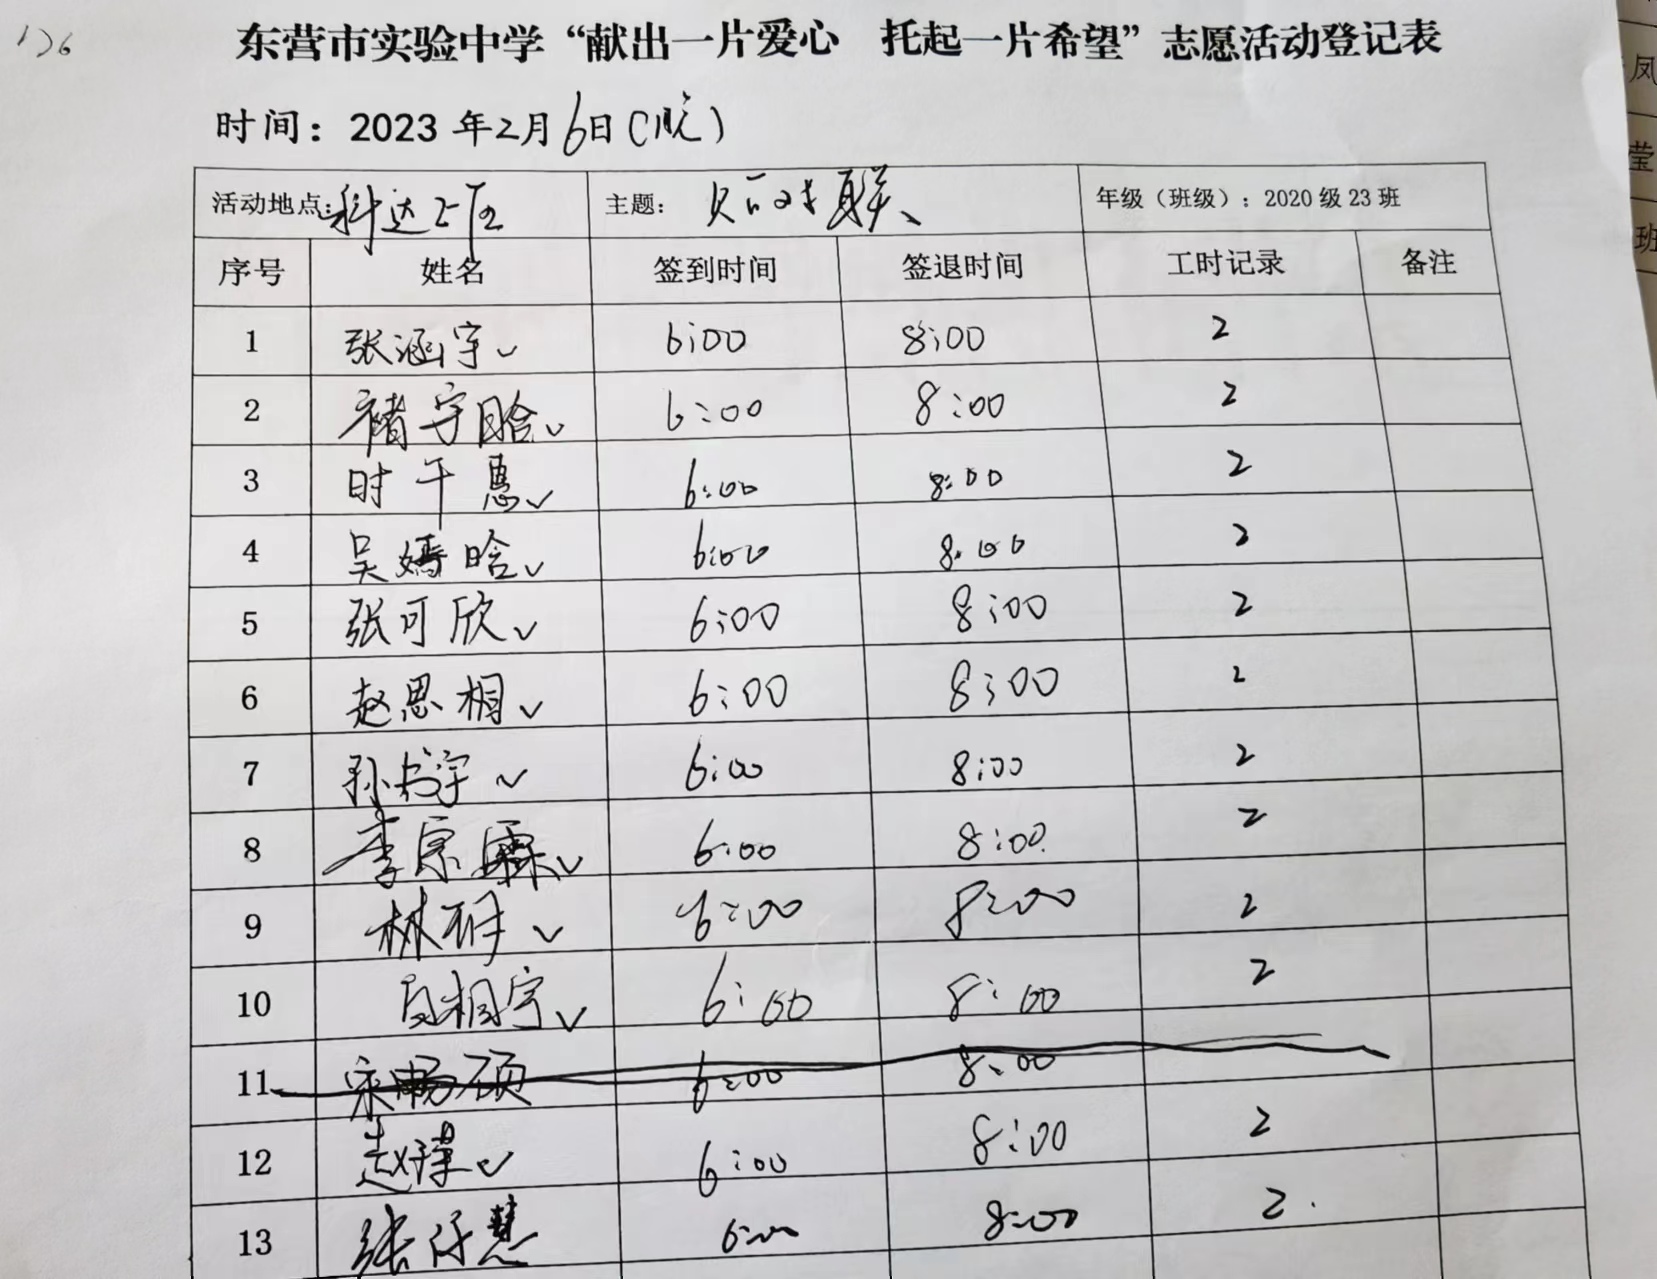 126
东营市实验中学“献出一片爱心 托起一片希望”志愿活动登记表
时间：2023 年2月6日(晚)
活动地点：科达 主题：贴对联 年级（班级）：2020 级 23 班
序号 姓名 签到时间 签退时间 工时记录 备注
1 张涵宇✓ 6:00 8:00 2
2 褚守晗✓ 6:00 8:00 2
3 时千惠✓ 6:00 8:00 2
4 吴嫣晗✓ 6:00 8:00 2
5 张可欣✓ 6:00 8:00 2
6 赵思桐✓ 6:00 8:00 2
7 孙书宇✓ 6:00 8:00 2
8 李宗霖✓ 6:00 8:00 2
9 林 ✓ 6:00 8:00 2
10 宇✓ 6:00 8:00 2
11 宋畅硕 6:00 8:00
12 赵 ✓ 6:00 8:00 2
13 张 慧 6:00 8:00 2.
凤
莹
班